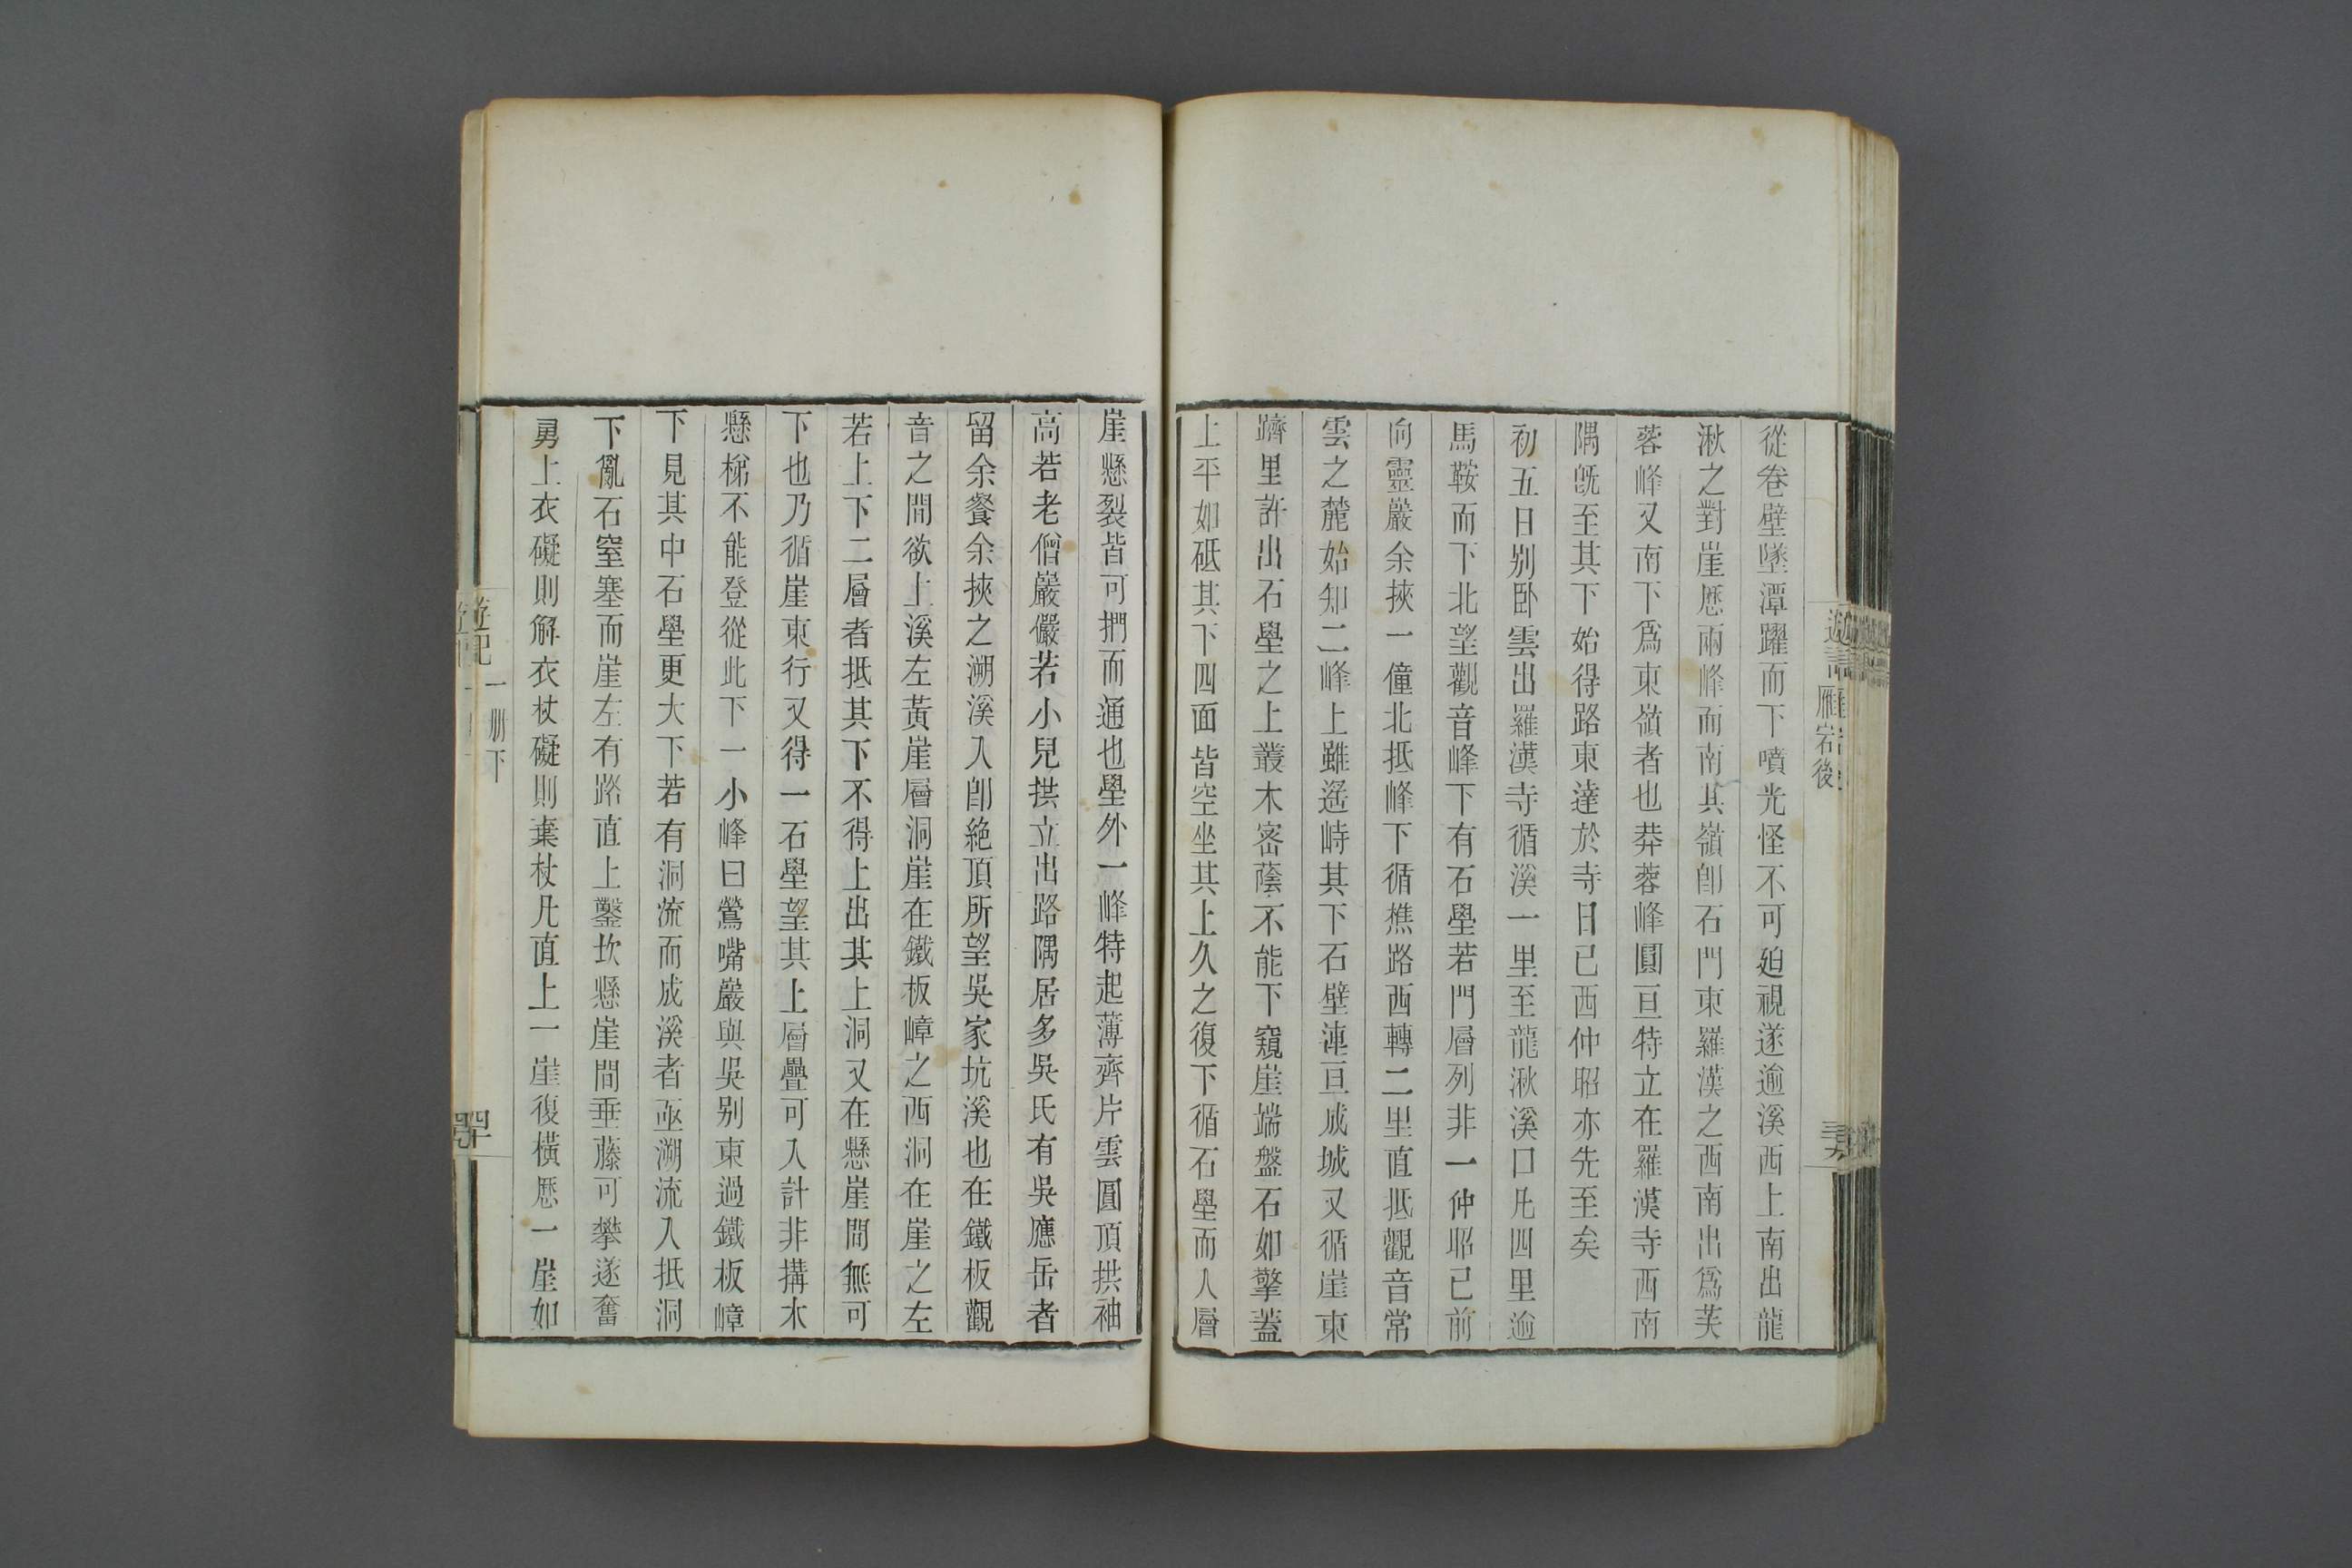 遊記
雁宕後
從卷壁墜潭躍而下噴光怪不可廹視遂逾溪西上南出龍
湫之對崖歷兩峰而南其嶺卽石門東羅漢之西南出爲芙
蓉峰又南下爲東嶺者也莽蓉峰圓亘特立在羅漢寺西南
隅旣至其下始得路東達於寺日已西仲昭亦先至矣
初五日别卧雲出羅漢寺循溪一里至龍湫溪口凡四里逾
馬鞍而下北望觀音峰下有石壆若門層列非一仲昭已前
向靈巖余挾一僮北抵峰下循樵路西轉二里直抵觀音常
雲之麓始知二峰上雖遙峙其下石壁連亘成城又循崖東
躋里許出石壆之上叢木密蔭不能下窺崖端盤石如擎蓋
上平如砥其下四面皆空坐其上久之復下循石壆而人層
崖懸裂皆可捫而通也壆外一峰特起薄齊片雲圓頂拱袖
高若老僧巖儼若小兒拱立出路隅居多吳氏有吳應岳者
留余餐余挾之溯溪入卽絶頂所望吳家坑溪也在鐵板觀
音之間欲上溪左黃崖層洞崖在鐵板嶂之西洞在崖之左
若上下二層者抵其下不得上出其上洞又在懸崖間無可
下也乃循崖東行又得一石壆望其上層疊可入計非搆木
懸梯不能登從此下一小峰曰鶯嘴巖與吳别東過鐵板嶂
下見其中石壆更大下若有洞流而成溪者亟溯流入抵洞
下亂石窒塞而崖左有路直上鑿坎懸崖間垂藤可攀遂奮
勇上衣礙則解衣杖礙則棄杖凡直上一崖復橫歷一崖如
遊記
一册下
四十